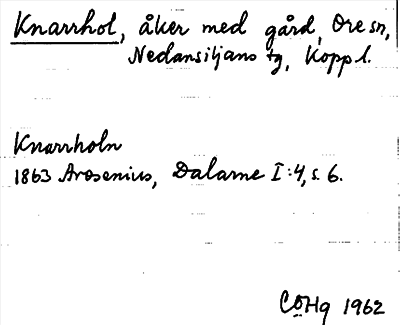 Knarrhol, åker med gård, Ore sn,
Nedansiljans tg, Kopp l.
Knarrholn
1863 Arosenius, Dalarne I:4, s. 6.
CÖHg 1962